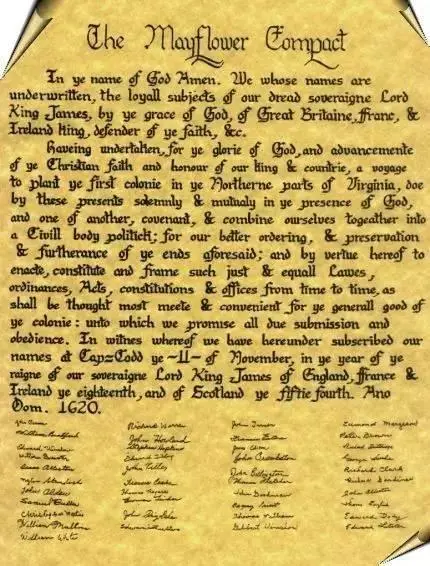 The Mayflower Compact
In ye name of God Amen. We whose names are
underwritten, the loyall subjects of our dread soveraigne Lord
King James, by ye grace of God, of Great Britaine, franc, &
Ireland king, defender of ye faith, &c.
Haveing undertaken, for ye glorie of God, and advancemente
of ye Christian faith and honour of our king & countrie, a voyage
to plant ye first colonie in ye Northerne parts of Virginia, doe
by these presents solemnly & mutualy in ye presence of God,
and one of another, covenant, & combine ourselves togeather into
a Civill body politick; for our better ordering, & preservation
& furtherance of ye ends aforesaid; and by vertue hereof to
enacte, constitute and frame such just & equall Lawes,
ordinances, Acts, constitutions & offices from time to time, as
shall be thought most meete & convenient for ye generall good of
ye colonie: unto which we promise all due submission and
obedience. In witnes whereof we have hereunder subscribed our
names at Cap=Codd ye ~11~ of November, in ye year of ye
raigne of our soveraigne Lord King James of England, france &
Ireland ye eighteenth, and of Scotland ye fiftie fourth. Ano
Dom. 1620.
Richard Warren John Turner
William Bradford John Howland
Stephen Hopkins
John Crackston
Isaac Allerton John Tilley
John Billington
John Alden
Samuel Fuller
William Mullins
William White
Peter Brown
Richard Clark
John Allerton
Edward Doty